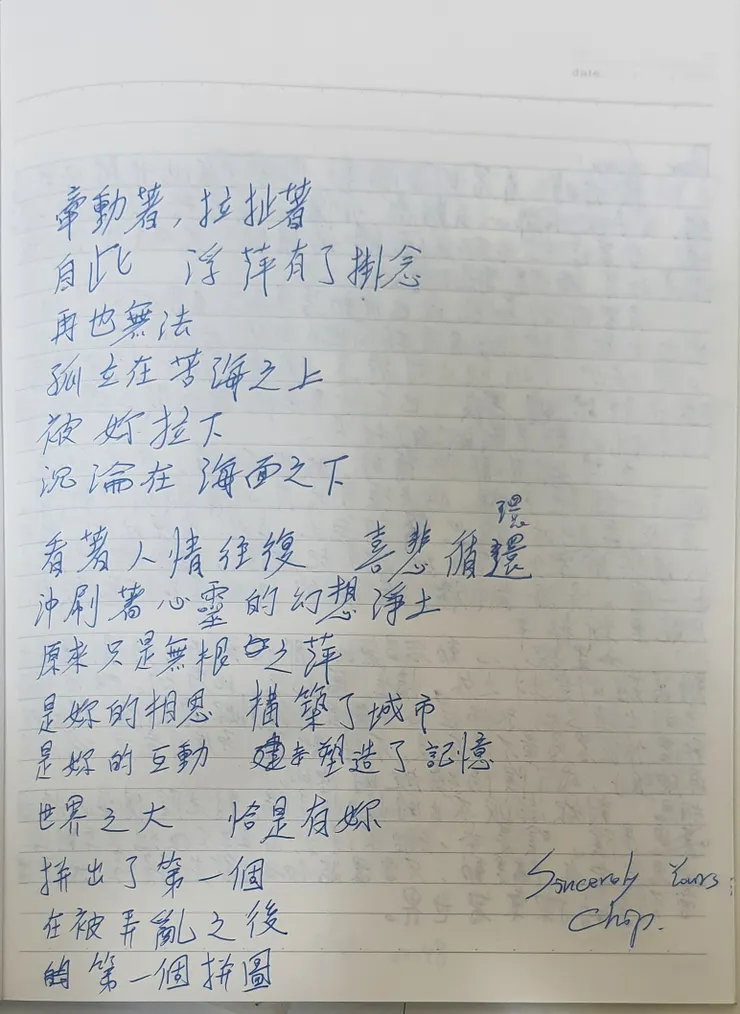 date.
牽動著,拉扯著
自此 浮萍有了掛念
再也無法
孤立在苦海之上
被妳拉下
沉淪在海面之下
看著人情往復 喜悲循環
沖刷著心靈的幻想淨土
原來只是無根之萍
是妳的相思 構築了城市
是妳的互動 塑造了記憶
世界之大 恰是有妳
拼出了第一個
在被弄亂之後
的第一個拼圖
Sincerely Yours
Chip.